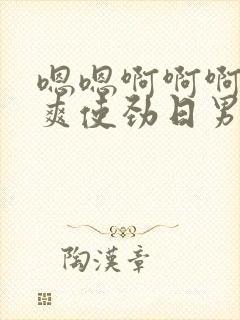 嗯嗯啊啊啊
爽使劲日男
陶漢章